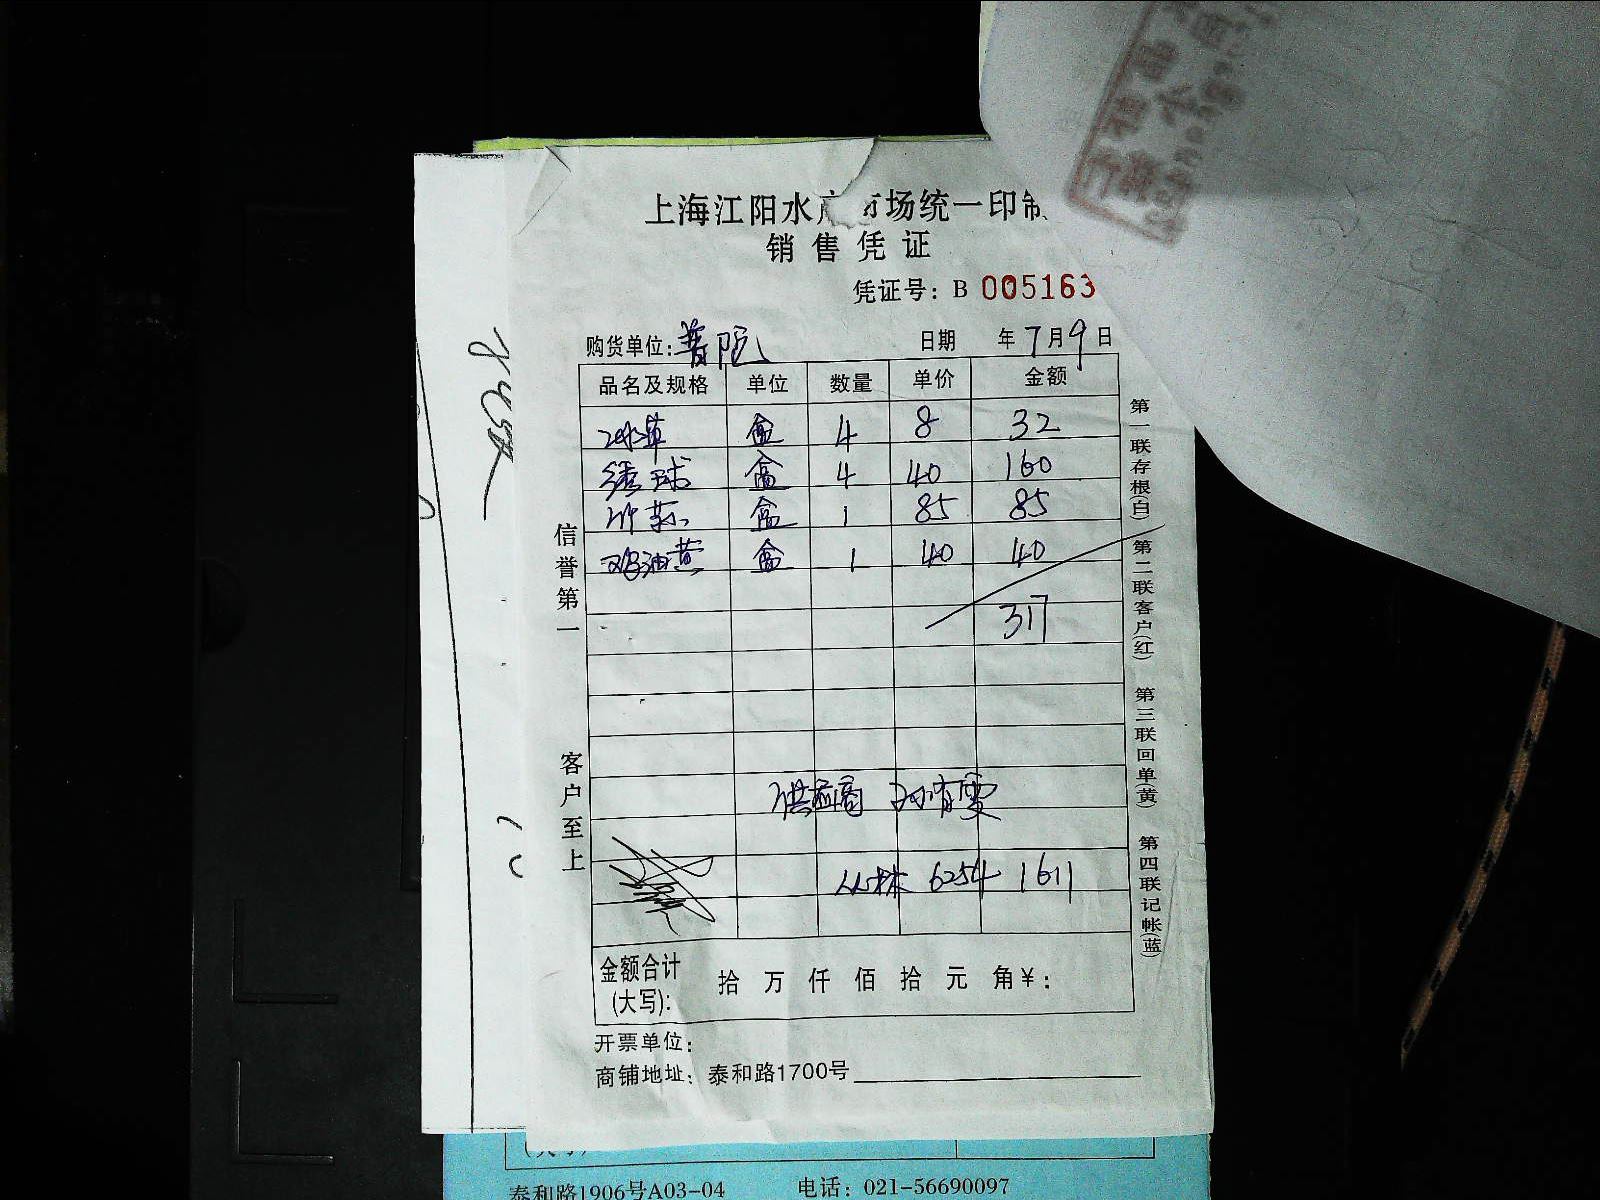 上海江阳水产市场统一印制
销售凭证
凭证号: B 005163
购货单位: 普陀 日期 年 7 月 9 日
品名及规格 单位 数量 单价 金额
冰草 盒 4 8 32
绣球 盒 4 40 160
竹荪 盒 1 85 85
鸡油黄 盒 1 40 40
317
供应商 孙有雯
丛林 6254 1611
金额合计
(大写): 拾 万 仟 佰 拾 元 角 ¥:
开票单位:
商铺地址: 泰和路1700号
信誉第一
客户至上
第一联存根(白) 第二联客户(红) 第三联回单(黄) 第四联记帐(蓝)
泰和路1906号A03-04 电话: 021-56690097